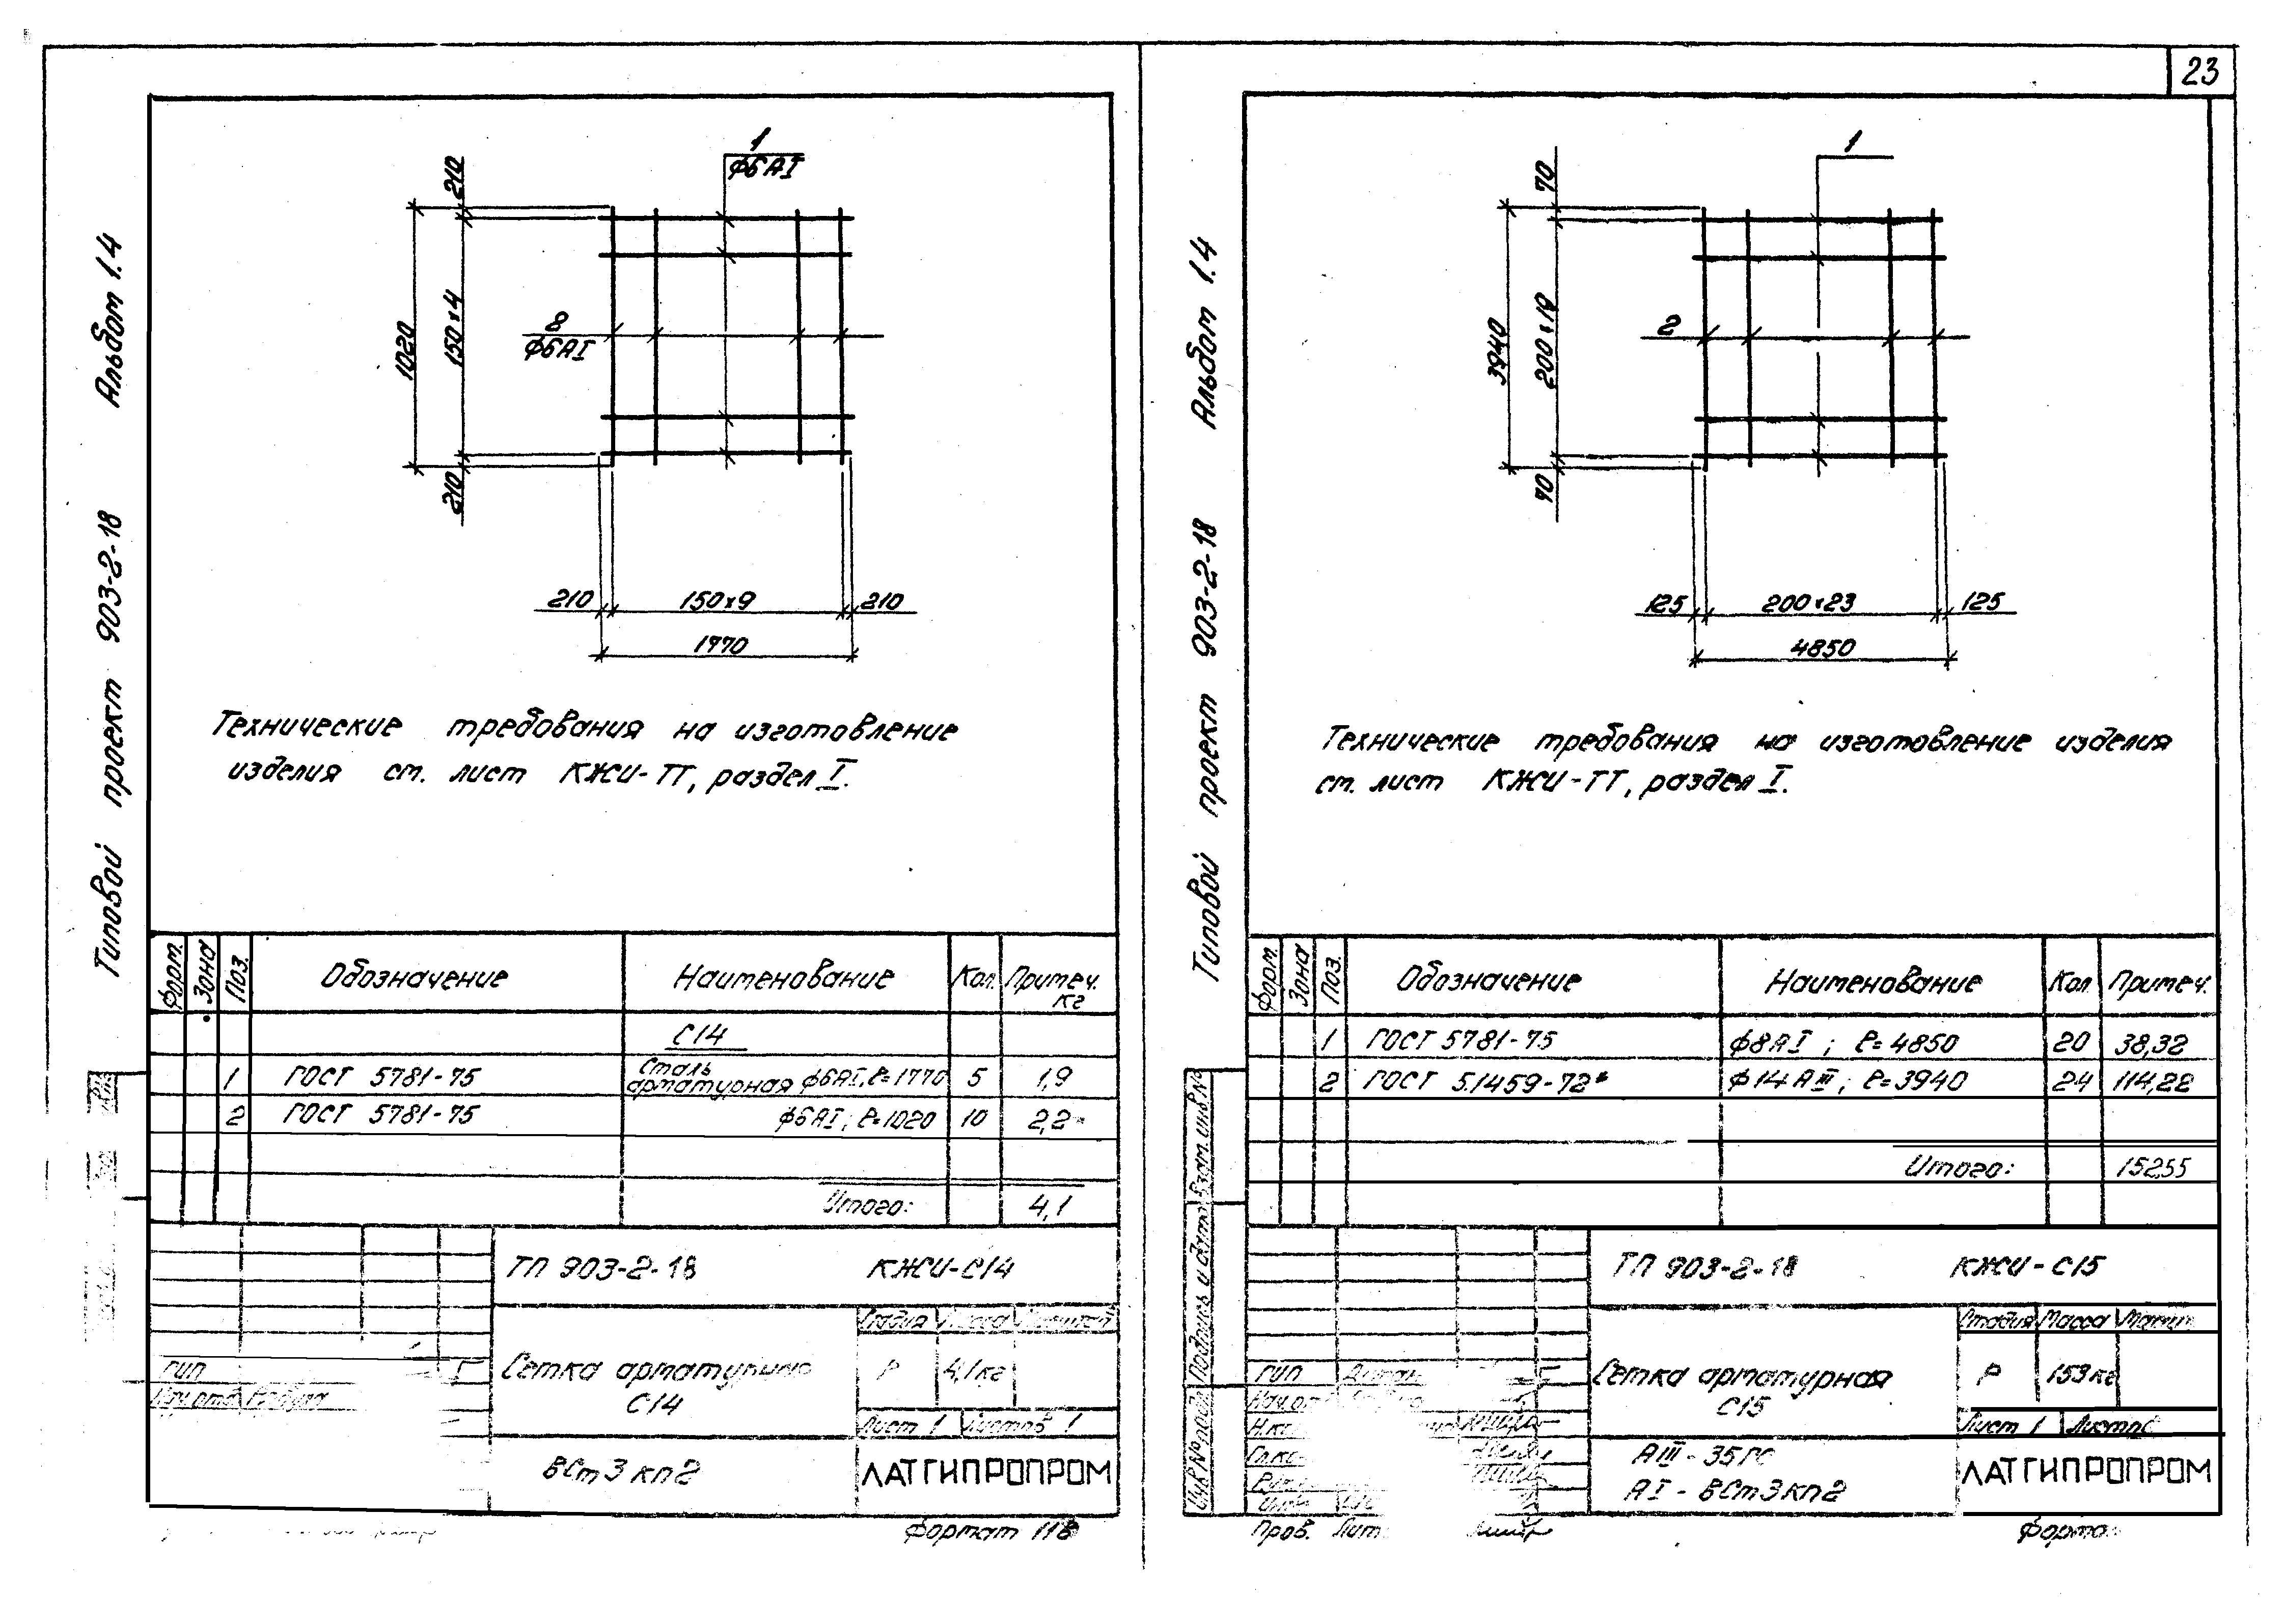 23
Типовой проект 903-2-18 Альбом 1.4
1
Ф6АI
210
1020
150х4
8
Ф6АI
210
210 150х9 210
1770
Технические требования на изготовление
изделия см. лист КЖИ-ТТ, раздел I.
Форм. Зона Поз. Обозначение Наименование Кол. Примеч. кг
С14
1 ГОСТ 5781-75 Сталь арматурная ф6АI, ℓ=1770 5 1,9
2 ГОСТ 5781-75 ф6АI; ℓ=1020 10 2,2
Итого: 4,1
ТП 903-2-18 КЖИ-С14
Стадия Масса
ГИП
Сетка арматурная
С14
Р 4,1кг
Лист 1 Листов 1
ВСт3кп2
ЛАТГИПРОПРОМ
Формат 11в
Типовой проект 903-2-18 Альбом 1.4
1
70
3940
200х19
2
70
125 200х23 125
4850
Технические требования на изготовление изделия
см. лист КЖИ-ТТ, раздел I.
Форм. Зона Поз. Обозначение Наименование Кол. Примеч.
1 ГОСТ 5781-75 ф8АI; ℓ=4850 20 38,32
2 ГОСТ 5.1459-72* ф14АIII; ℓ=3940 24 114,22
Итого: 152,55
Инв.№ подл. Подпись и дата Взам. инв.№
ТП 903-2-18 КЖИ-С15
Стадия Масса
ГИП
Сетка арматурная
С15
Р 153кг
Лист 1
АIII-35ГС
АI-ВСт3кп2
ЛАТГИПРОПРОМ
Пров.